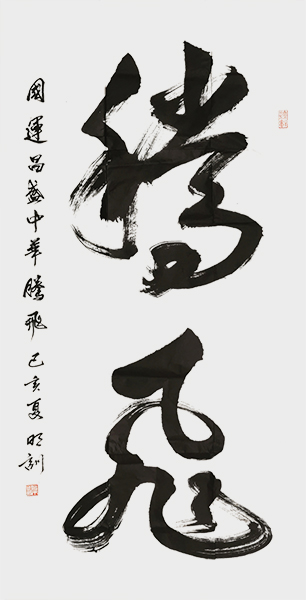 腾飞
國運昌盛中華騰飛己亥夏明訓